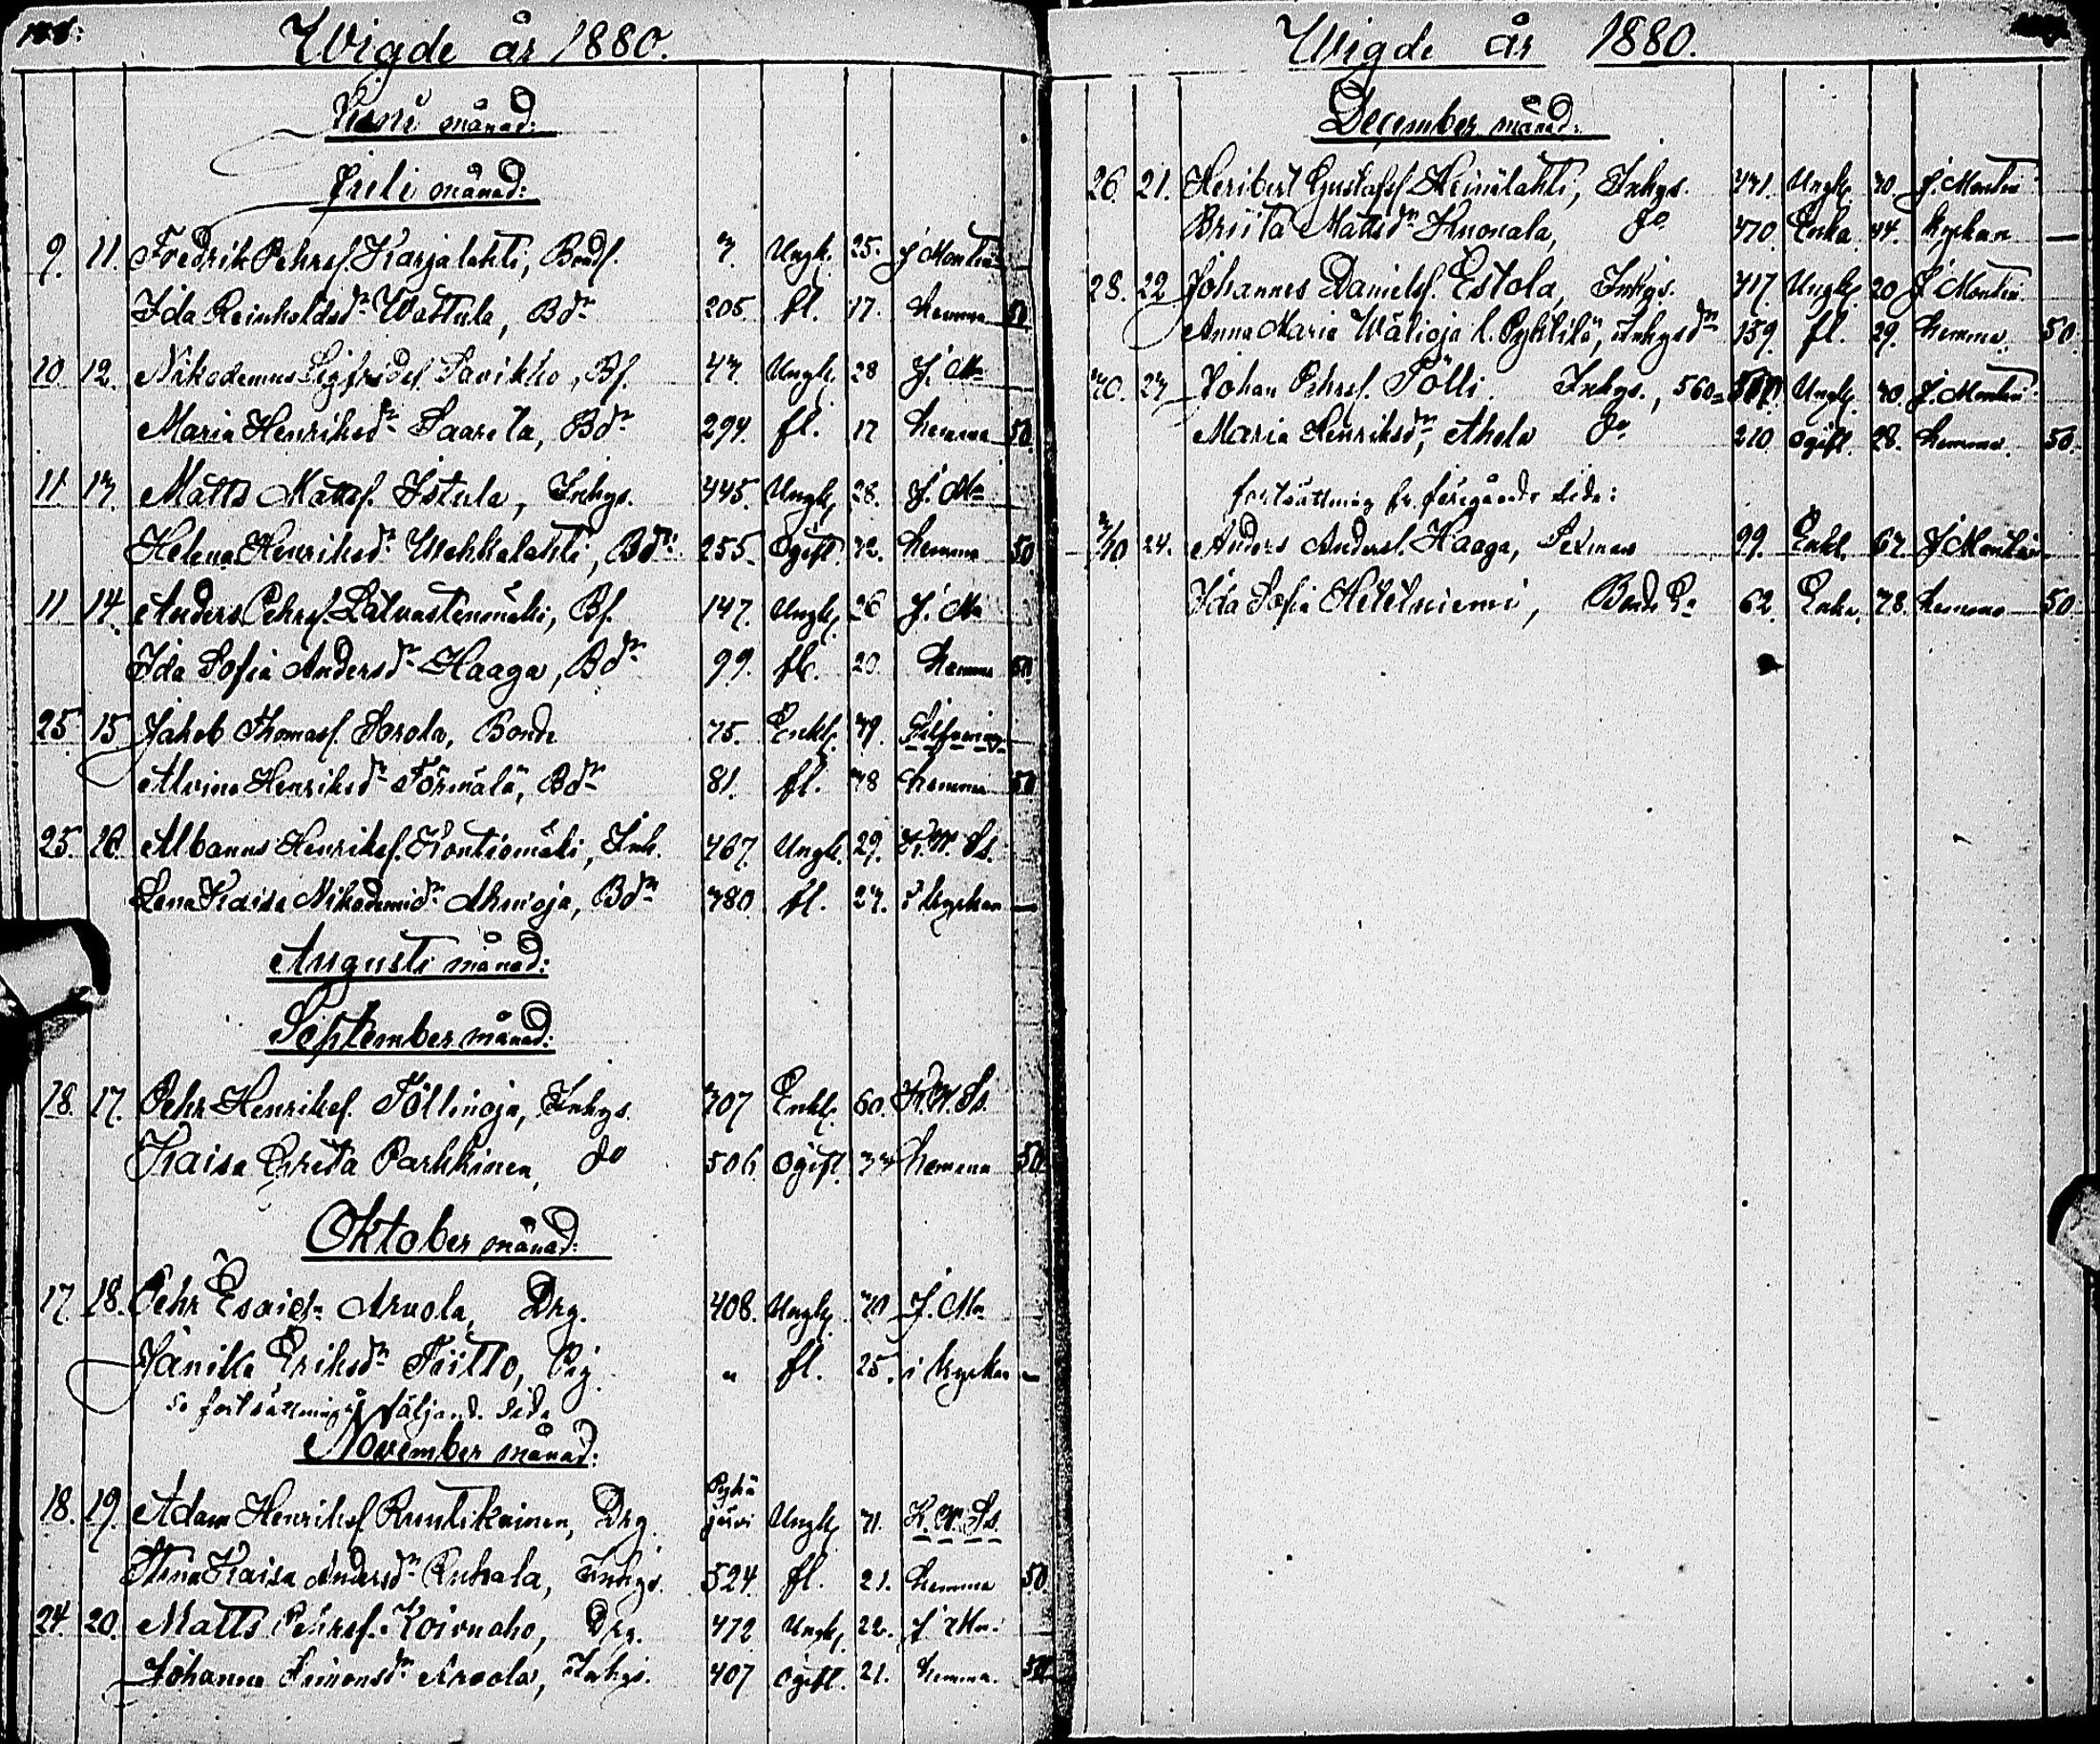 Wigde år 1880.
Juni månad:
Juli månad:
9. 11. Fredrik Pehrsf. Karjalahti, Bondf. Ungk. 25. J. Montin
Ida Reinholdsdr Wattula, Bdr 205. fl. 17. hemma 50
10. 12. Nikodemus Sigfridsf. Savikko, Bf. 47. Ungk. 28 J. Mn
Maria Henriksdr Saarela, Bdr 294. fl. 17 hemma 50
11. 13. Matts Mattsf. Istula, Inhys. 445. Ungk. 28. J. Mn
Helena Henriksdr Bdr 255. Ogift. 32. hemma 50
11 14. Anders Pehrsf. Bf. 147. Ungk. 26 J. Mn
Ida Sofia Andersdr Haaga, Bdr 99. fl. 20. hemma 50
25 15 Jakob Thomasf. Bonde 75. Enkl. 39.
Alvina Henriksdr Törmälä, Bdr 81. fl. 38 hemma 50
25. 16. Albanus Henriksf. Kontiomäki, Inh. 467. Ungk. 29. K. W. Ss.
Lena Kaisa Nikodemidr Ahvioja, Bdr 380. fl. 23. i kyrkan —
Augusti månad:
September månad:
18. 17. Pehr Henriksf. Töllinoja, Inhys. 307 Enkl. 60. K. W. Ss.
Kaisa Greta Parkkinen, do 506. Ogift. 33 hemma 50
Oktober månad:
17. 18. Pehr Esaiesn Arvola, Drg. 408. Ungk. 30 J. Mn
Janika Eriksdr Tiitto, Pig. " fl. 25. i kyrkan —
Se fortsättning å följand. sida
November månad:
18. 19. Adam Henriksf. Ruutikainen, Drg. Pyhäjärvi Ungk. 31. K. W. Ss.
Stina Kaisa Andersdr Inhys. 524. fl. 21. hemma 50.
24. 20. Matts Pehrsf. Koivuaho, Drg. 472 Ungk. 22. J. Mn.
Johanna Simonsdr Arvola, Inhys. 407 Ogift. 21. hemma. 50
Wigde år 1880.
December månad:
26. 21. Heribert Gustafsf. Heinälahti, Inhys. 431. Ungk. 30 J. Montin
Briita Mattsdr Kuonala, do 470. Enka 44. kyrkan —
28. 22 Johannes Danielsf. Estola, Inhys. 417. Ungk. 20 J. Montin
Anna Maria Wälioja l. Inhysdr 159. fl. 29. hemma. 50.
30. 23 Johan Pehrsf. Pölli. Inhys., 560 Ungk. 30. J. Montin
Maria Henriksdr Ahola do 210 ogift. 28. hemma. 50.
fortsättning fr. föregående sida:
24. Anders Andersf. Haaga, Sexman 99. Enkl. 67. J. Montin
Ida Sofia Hietaniemi, Bonde Ea 62. Enka. 38. hemma 50.